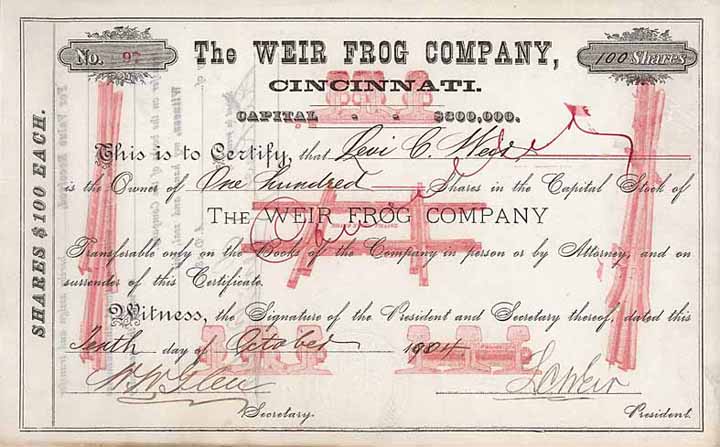 No. 97
The WEIR FROG COMPANY,
100 Shares
CINCINNATI.
CAPITAL - - $300,000.
This is to Certify, that Levi C. Weir
is the Owner of One hundred Shares in the Capital Stock of
THE WEIR FROG COMPANY
Transferable only on the Books of the Company in person or by Attorney, and on
surrender of this Certificate.
Witness, the Signature of the President and Secretary thereof, dated this
Tenth day of October 1884
L C Weir
Secretary.
President.
SHARES $100 EACH.
Cancelled